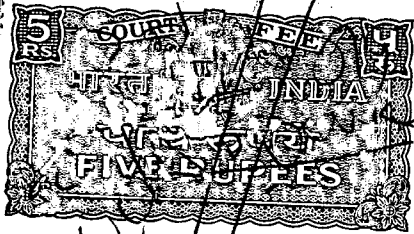 5 COURT FEE ५
RS. रु.
भारत INDIA
पाँच रुपये
FIVE RUPEES